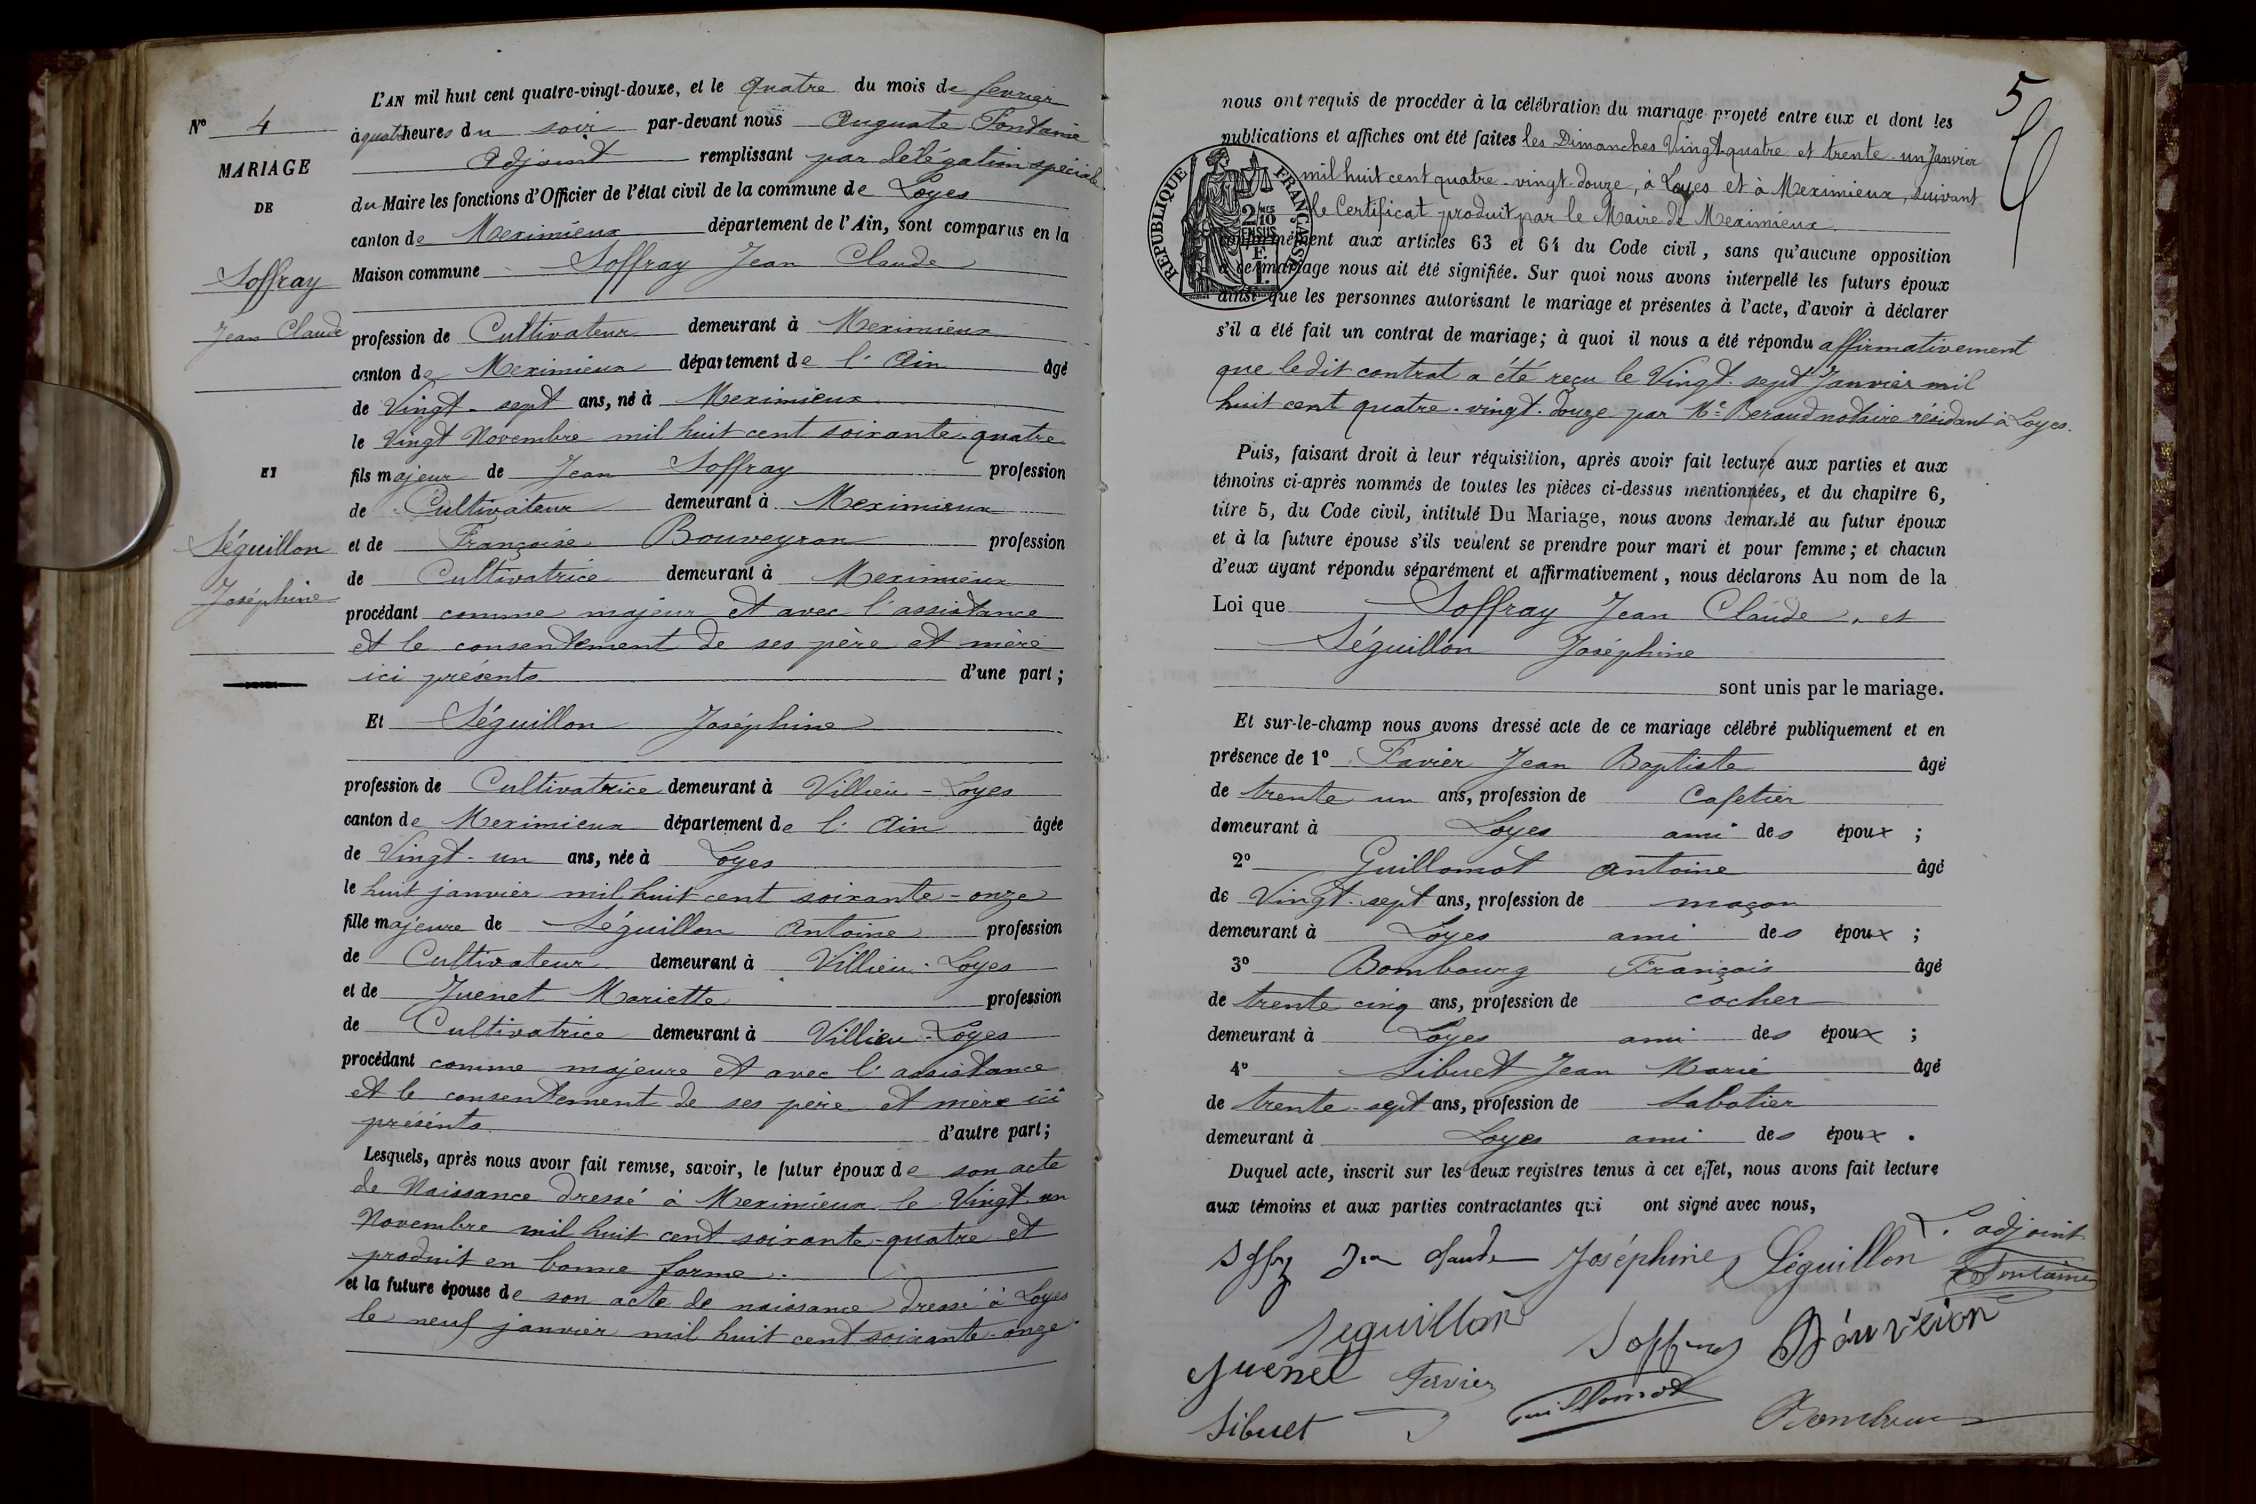 L'AN mil huit cent quatre-vingt-douze, et le quatre du mois de fevrier
à quatre heures du soir par-devant nous Auguste Fontaine
adjoint remplissant par délégation spéciale
du Maire les fonctions d'Officier de l'état civil de la commune de Loyes
canton de Meximieux département de l'Ain, sont comparus en la
Maison commune Soffray Jean Claude
profession de Cultivateur demeurant à Meximieux
canton de Meximieux département de l'Ain âgé
de Vingt-sept ans, né à Meximieux
le Vingt Novembre mil huit cent soixante-quatre
fils majeur de Jean Soffray profession
de Cultivateur demeurant à Meximieux
et de Françoise Bouveyron profession
de Cultivatrice demeurant à Meximieux
procédant comme majeur et avec l'assistance
et le consentement de ses père et mère
ici présents d'une part ;
Et Séguillon Joséphine
profession de Cultivatrice demeurant à Villieu-Loyes
canton de Meximieux département de l'Ain âgée
de Vingt-un ans, née à Loyes
le huit janvier mil huit cent soixante-onze
fille majeure de Séguillon Antoine profession
de Cultivateur demeurant à Villieu-Loyes
et de Juenet Mariette profession
de Cultivatrice demeurant à Villieu-Loyes
procédant comme majeure et avec l'assistance
et le consentement de ses père et mère ici
présents d'autre part ;
Lesquels, après nous avoir fait remise, savoir, le futur époux de son acte
de Naissance dressé à Meximieux le Vingt-un
Novembre mil huit cent soixante-quatre et
produit en bonne forme.
et la future épouse de son acte de naissance dressé à Loyes
le neuf janvier mil huit cent soixante-onze.
N° 4
MARIAGE
DE
Soffray
Jean Claude
ET
Séguillon
Joséphine
5
nous ont requis de procéder à la célébration du mariage projeté entre eux et dont les
publications et affiches ont été faites les Dimanches Vingt-quatre et trente-un Janvier
mil huit cent quatre-vingt-douze, à Loyes et à Meximieux, suivant
le Certificat produit par le Maire de Meximieux
conformément aux articles 63 et 64 du Code civil, sans qu'aucune opposition
à ce mariage nous ait été signifiée. Sur quoi nous avons interpellé les futurs époux
ainsi que les personnes autorisant le mariage et présentes à l'acte, d'avoir à déclarer
s'il a été fait un contrat de mariage; à quoi il nous a été répondu affirmativement
que ledit contrat a été reçu le Vingt-sept Janvier mil
huit cent quatre-vingt-douze par Me Beraud notaire résidant à Loyes.
RÉPUBLIQUE FRANÇAISE
2/10
EN SUS
1 F.
Puis, faisant droit à leur réquisition, après avoir fait lecture aux parties et aux
témoins ci-après nommés de toutes les pièces ci-dessus mentionnées, et du chapitre 6,
titre 5, du Code civil, intitulé Du Mariage, nous avons demandé au futur époux
et à la future épouse s'ils veulent se prendre pour mari et pour femme ; et chacun
d'eux ayant répondu séparément et affirmativement, nous déclarons Au nom de la
Loi que Soffray Jean Claude, et
Séguillon Joséphine
sont unis par le mariage.
Et sur-le-champ nous avons dressé acte de ce mariage célébré publiquement et en
présence de 1° Favier Jean Baptiste âgé
de trente un ans, profession de Cafetier
demeurant à Loyes ami des époux ;
2° Guillomot Antoine âgé
de Vingt-sept ans, profession de maçon
demeurant à Loyes ami des époux ;
3° Bombourg François âgé
de trente cinq ans, profession de cocher
demeurant à Loyes ami des époux ;
4° Sibuet Jean Marie âgé
de trente-sept ans, profession de Sabotier
demeurant à Loyes ami des époux .
Duquel acte, inscrit sur les deux registres tenus à cet effet, nous avons fait lecture
aux témoins et aux parties contractantes qui ont signé avec nous,
Soffray Jean Claude Joséphine Séguillon L'adjoint
Fontaine
Seguillon Soffray Bouveion
Juenet Favier Guillomot
Sibuet Bombour